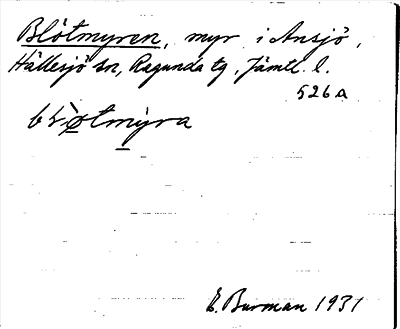 Blötmyren, myr i Ansjö,
Hällesjö sn, Ragunda tg, Jämtl. l.
526A
blø̀tmỳra
E. Burman 1931